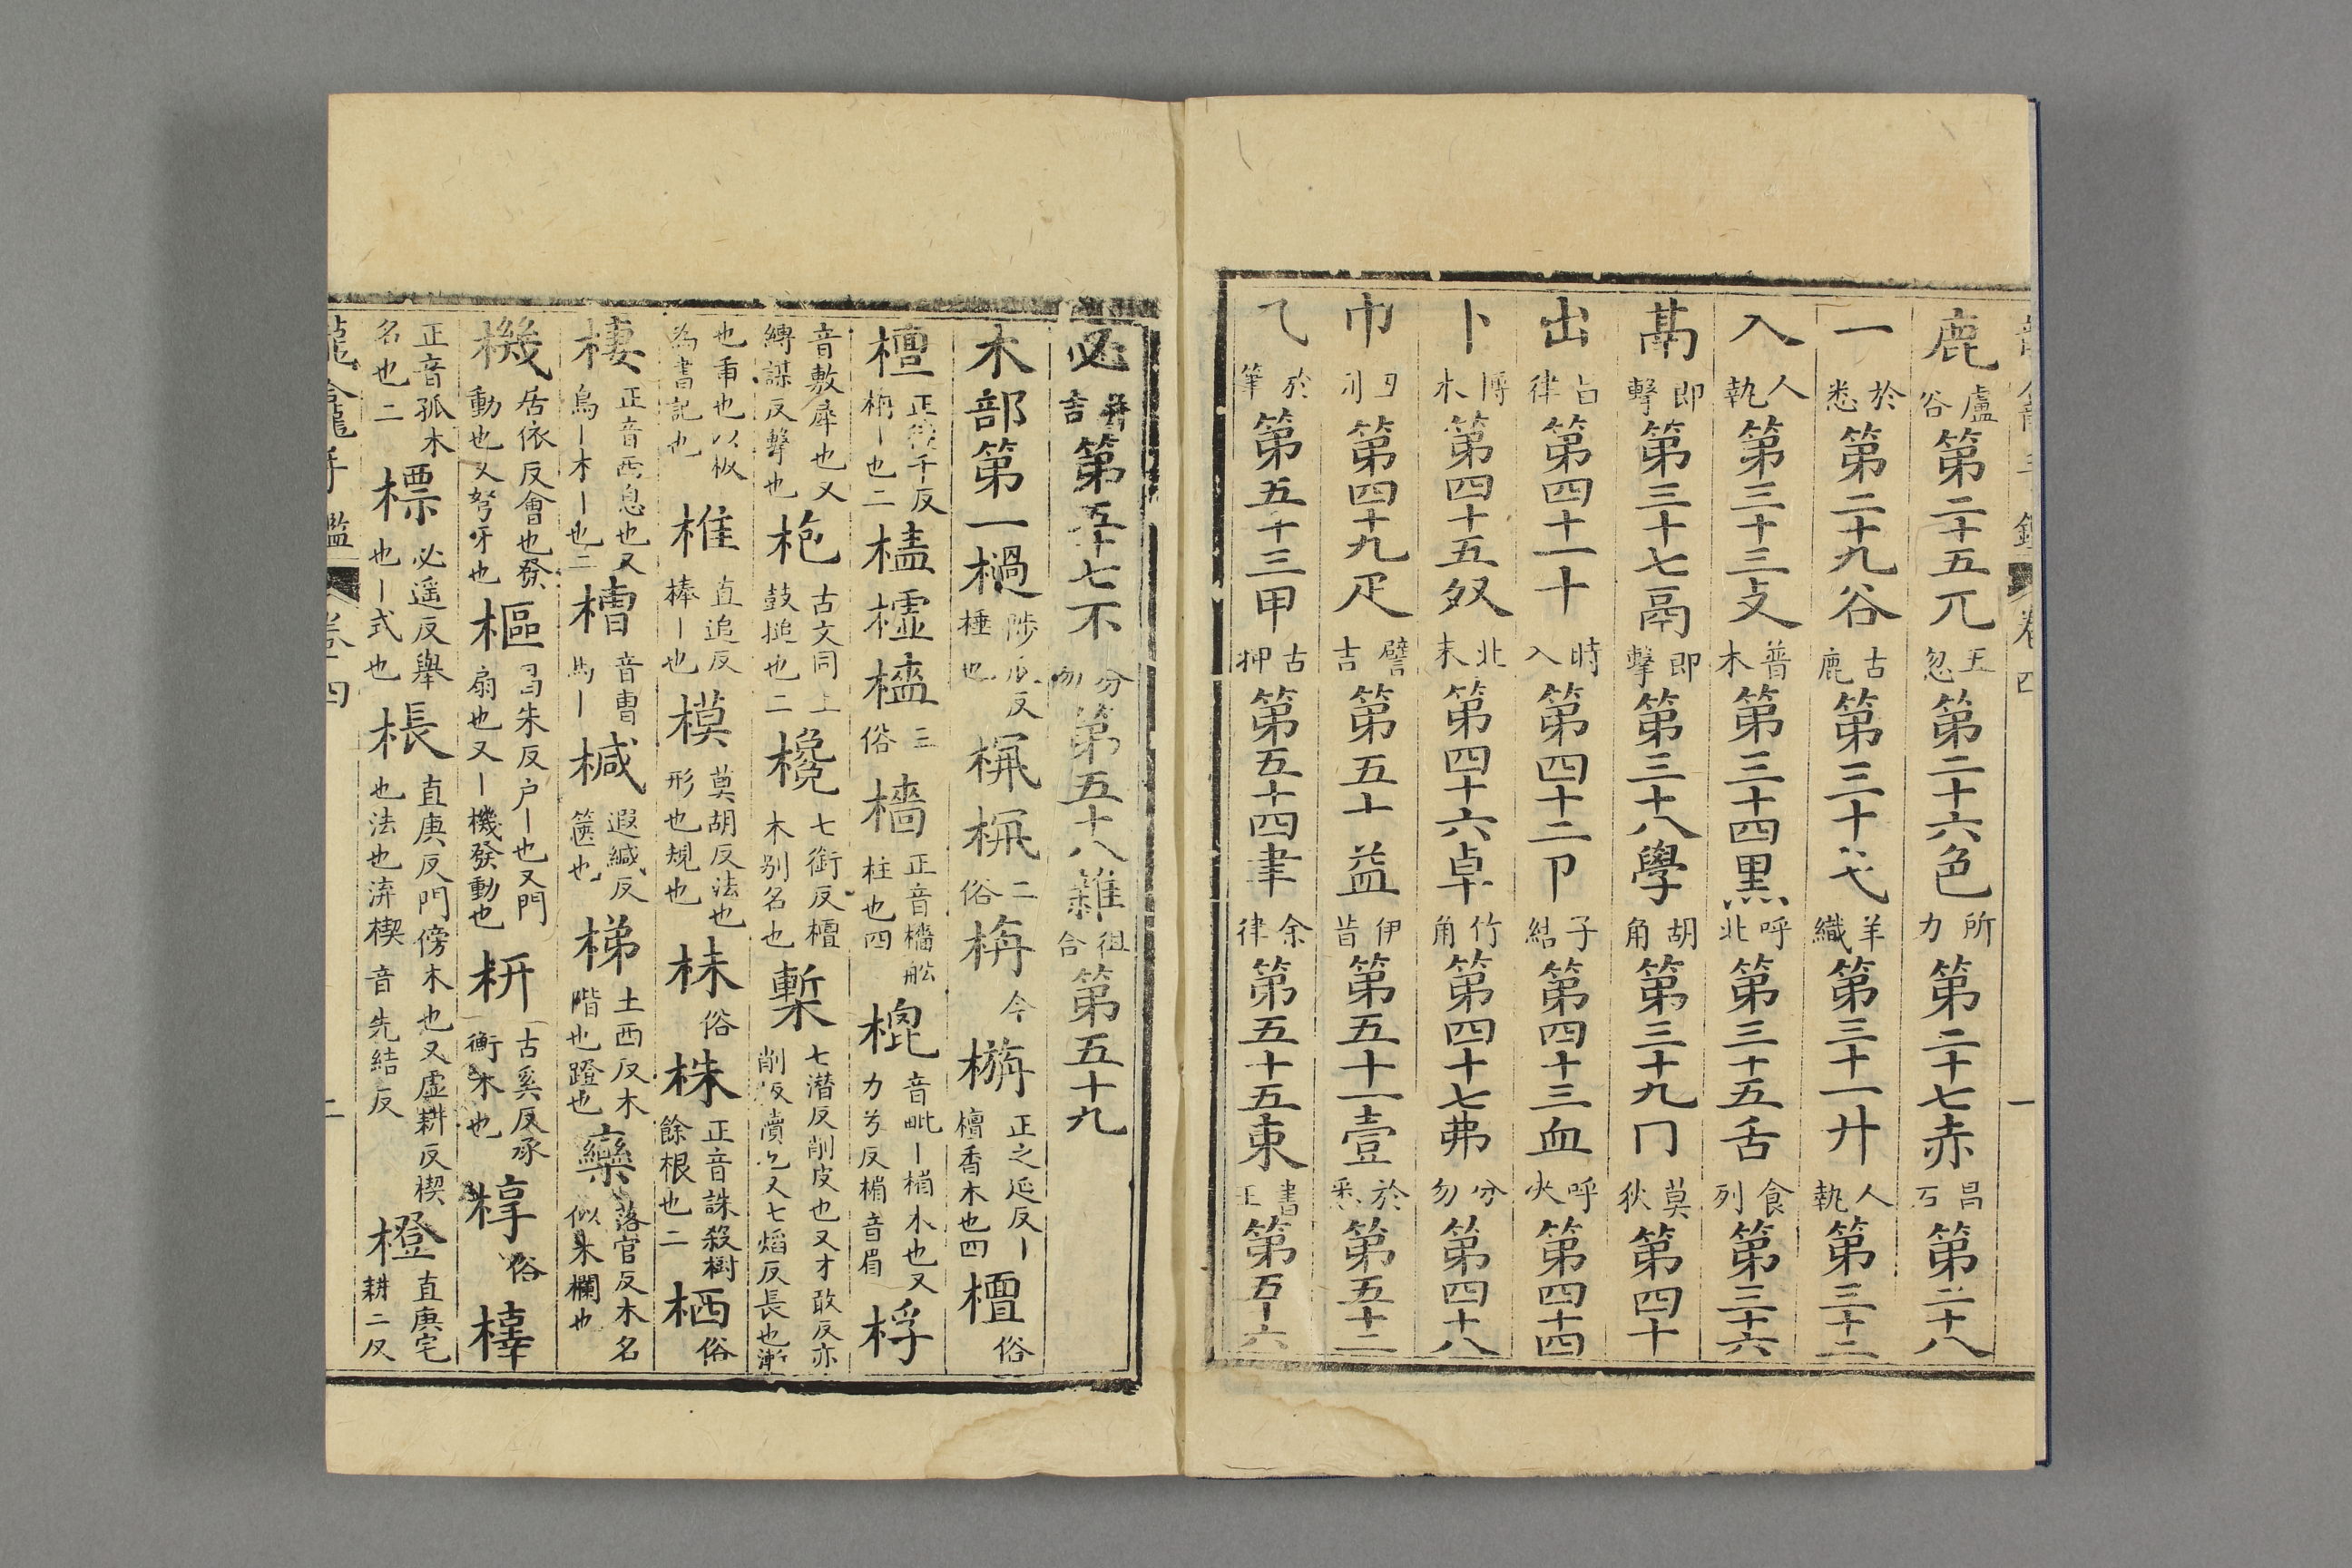 鹿盧谷第二十五兀五忽第二十六色所力第二十七赤昌石第二十八
一於悉第二十九谷古鹿第三十弋羊織第三十一廾人執第三十二
入人執第三十三攴普木第三十四黒呼北第三十五舌食列第三十六
𦶎即擊第三十七鬲即擊第三十八學胡角第三十九冂莫狄第四十
出占律第四十一十時入第四十二卩子結第四十三血呼火第四十四
卜博木第四十五癶北末第四十六卓竹角第四十七弗分勿第四十八
巾第四十九疋譬吉第五十益伊昔第五十一壹於悉第五十二
乁於筆第五十三甲古押第五十四聿余律第五十五束書玉第五十六
必并吉第五十七不分勿第五十八雜徂合第五十九
木部第一檛陟瓜反棰也二俗栴今正之延反丨檀香木也四檀俗
檀正徒干反栴丨也二三俗檣正音檣舩柱也四音毗丨楣木也又力兮反楣音眉桴
音敷屋也又縛謀反擊也枹古文同上鼓搥也二欃七銜反檀木别名也槧七潜反削皮也又才敢反亦削板牘也又七焰反長也
也甫也以板為書記也椎直追反棒丨也模莫胡反法也形也規也俗株正音誅殺樹餘根也二栖俗
棲正音西息也又鳥丨木丨也二槽音曹馬丨椷遐緘反篋也梯土西反木階也蹬也欒落官反木名似木欄也
機居依反會也發動也又弩牙也樞昌朱反户丨也又門扇也又丨機發動也枅古奚反承衡木也俗
正音孤木名也二標必遥反舉也丨式也棖直庚反門傍木也又虚耕反楔也法也㳒楔音先結反橙直庚宅耕二反
龍龕手鑑卷四二